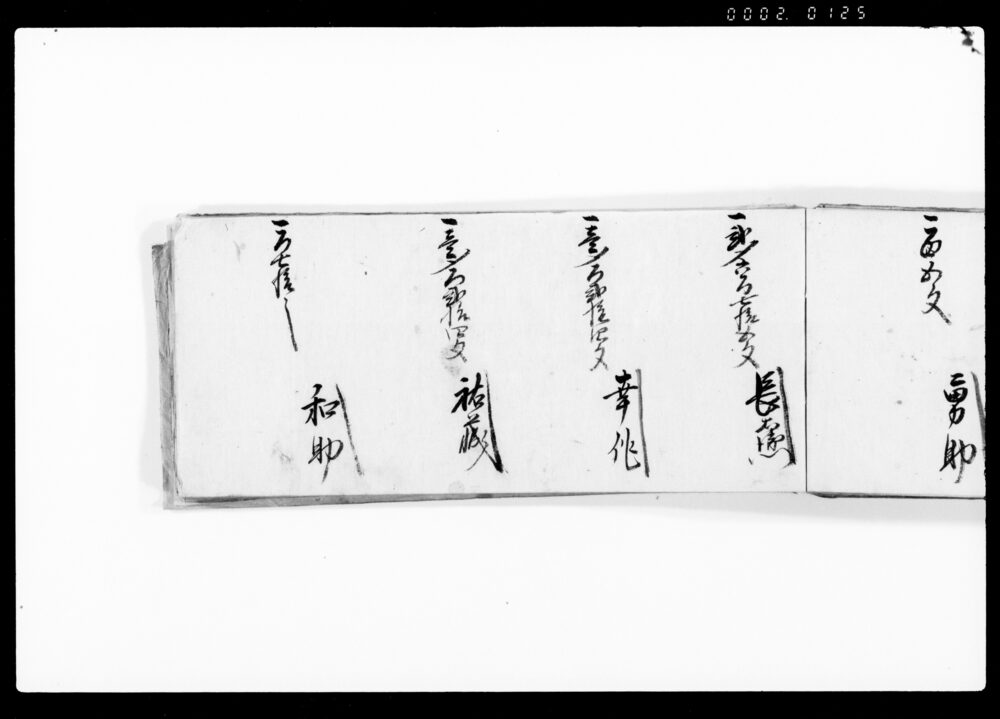 0002. 0125
一百五文
勇助
一弐〆六百七拾五文
一壱〆百弐拾四文
幸作
一壱〆百弐拾四文
祐蔵
一百七拾
和助